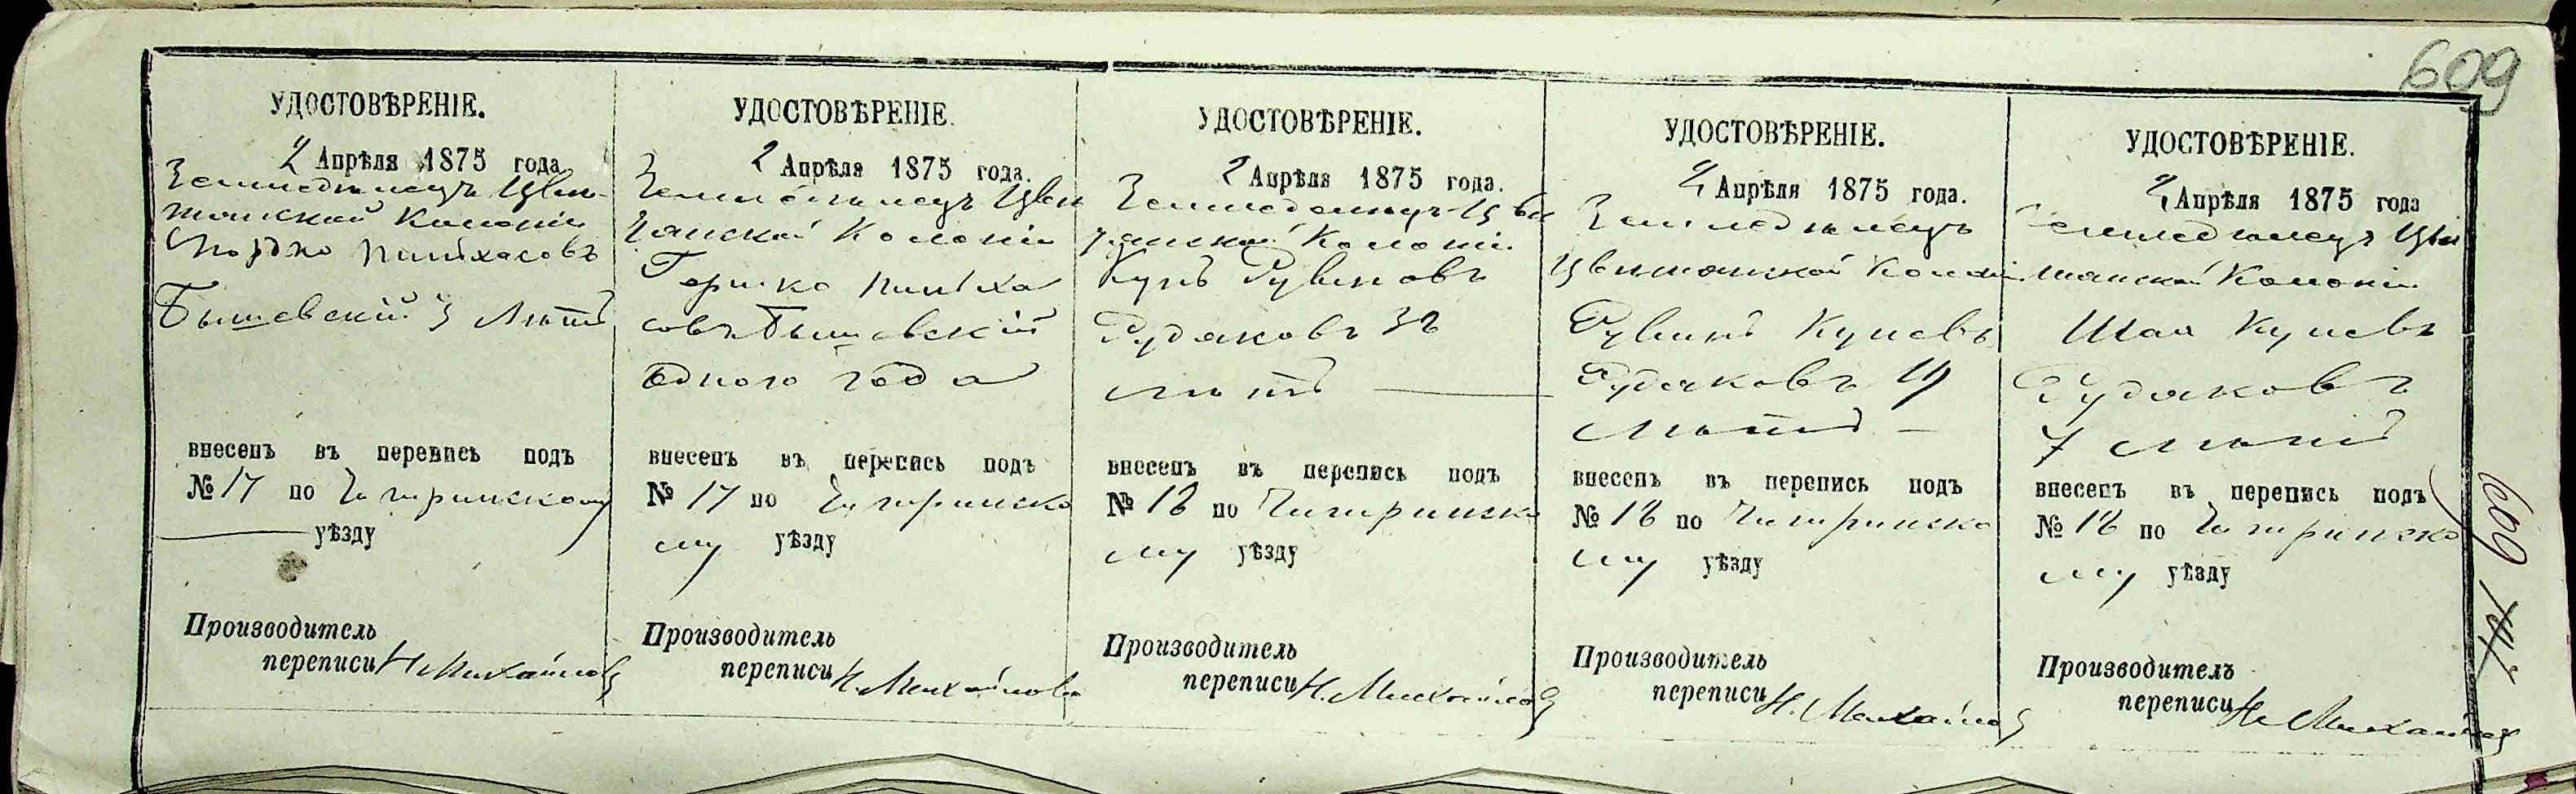 609
УДОСТОВѢРЕНІЕ.
2 Апрѣля 1875 года
Земледѣлецъ Цвит-
танской Колоніи
Пинхасовъ
Бышевскій 3 Лѣтъ
внесенъ въ перепись подъ
№ 17 по Чигиринскому
уѣзду
Производитель
переписи Н. Михайловъ
УДОСТОВѢРЕНІЕ.
2 Апрѣля 1875 года.
Земледѣлецъ Цвит
танской Колоніи
Гершко Пинха
совъ Бышевскій
Одного года
внесенъ въ перепись подъ
№ 17 по Чигиринско
му уѣзду
Производитель
переписи Н. Михайловъ
УДОСТОВѢРЕНІЕ.
2 Апрѣля 1875 года.
Земледѣлецъ Цви
танской Колоніи
Кунъ Рувиновъ
Рудаковъ 32
лѣтъ
внесенъ въ перепись подъ
№ 18 по Чигиринско
му уѣзду
Производитель
переписи Н. Михайловъ
УДОСТОВѢРЕНІЕ.
2 Апрѣля 1875 года.
Земледѣлецъ
Цвитанской Колоніи
Рувинъ Куневъ
Рудаковъ
лѣтъ
внесенъ въ перепись подъ
№ 18 по Чигиринско
му уѣзду
Производитель
переписи Н. Михайловъ
УДОСТОВѢРЕНІЕ.
2 Апрѣля 1875 года
Земледѣлецъ Цви
танской Колоніи
Шая Куневъ
Рудаковъ
7 лѣтъ
внесенъ въ перепись подъ
№ 18 по Чигиринско
му уѣзду
Производитель
переписи Н. Михайловъ
609